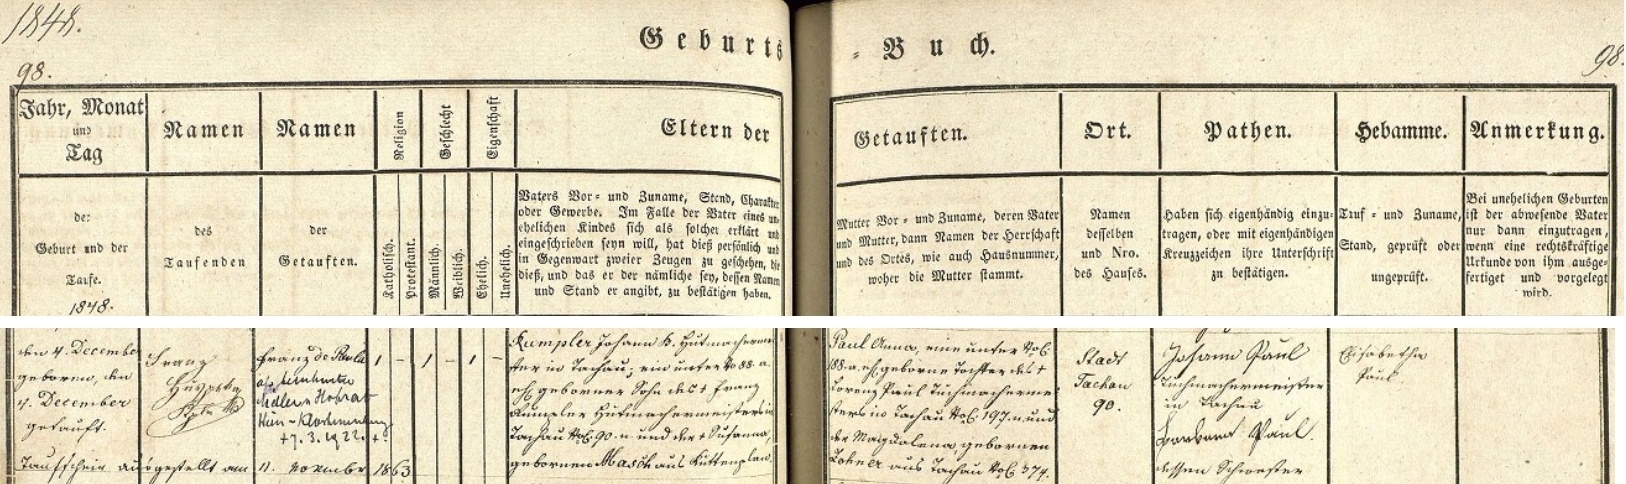 1848.
98.
Geburts
- Buch.
98.
Jahr, Monat
und
Tag
der
Geburt und der
Taufe.
1848.
Namen
des
Taufenden
Namen
der
Getauften.
Religion
Katholisch.
Protestant.
Geschlecht
Männlich.
Weiblich.
Eigenschaft
Ehelich.
Unehelich.
Eltern der
Vaters Vor- und Zuname, Stand, Charakter
oder Gewerbe. Im Falle der Vater eines un-
ehelichen Kindes sich als solcher erklärt und
eingeschrieben seyn will, hat dieß persönlich und
in Gegenwart zweier Zeugen zu geschehen, die
dieß, und das er der nämliche sey, dessen Namen
und Stand er angibt, zu bestätigen haben.
Getauften.
Mutter Vor- und Zuname, deren Vater
und Mutter, dann Namen der Herrschaft
und des Ortes, wie auch Hausnummer,
woher die Mutter stammt.
Ort.
Namen
desselben
und Nro.
des Hauses.
Pathen.
Haben sich eigenhändig einzu-
tragen, oder mit eigenhändigen
Kreuzzeichen ihre Unterschrift
zu bestätigen.
Hebamme.
Tauf- und Zuname,
Stand, geprüft oder
ungeprüft.
Anmerkung.
Bei unehelichen Geburten
ist der abwesende Vater
nur dann einzutragen,
wenn eine rechtskräftige
Urkunde von ihm ausge-
fertiget und vorgelegt
wird.
den 4. December
geboren, den
4. December
getauft.
Franz
Franz de Paula
Hofrat
Wien - Klosterneuburg
+ 7. 3. 1922. +
1 - 1 - 1 -
Rumpler Johann b. Hutmacherme-
ster in Tachau; ein unter No 88. a.
eh. geborner Sohn des + Franz
Rumpler Hutmachermeisters in
Tachau No C. 90. n. und der + Susanna,
gebornen Masch aus Kuttenplan.
Paul Anna, eine unter No C.
188. a. eh. geborne Tochter des +
Lorenz Paul Tuchmacherme-
sters in Tachau No C. 197. n. und
der Magdalena, gebornen
Lohner aus Tachau No C. 374.
Stadt
Tachau
90.
Johann Paul
Tuchmachermeister
in Tachau
Barbara Paul.
dessen Schwester
Elisabetha
Paul
Taufschein ausgestellt am 11. November 1863